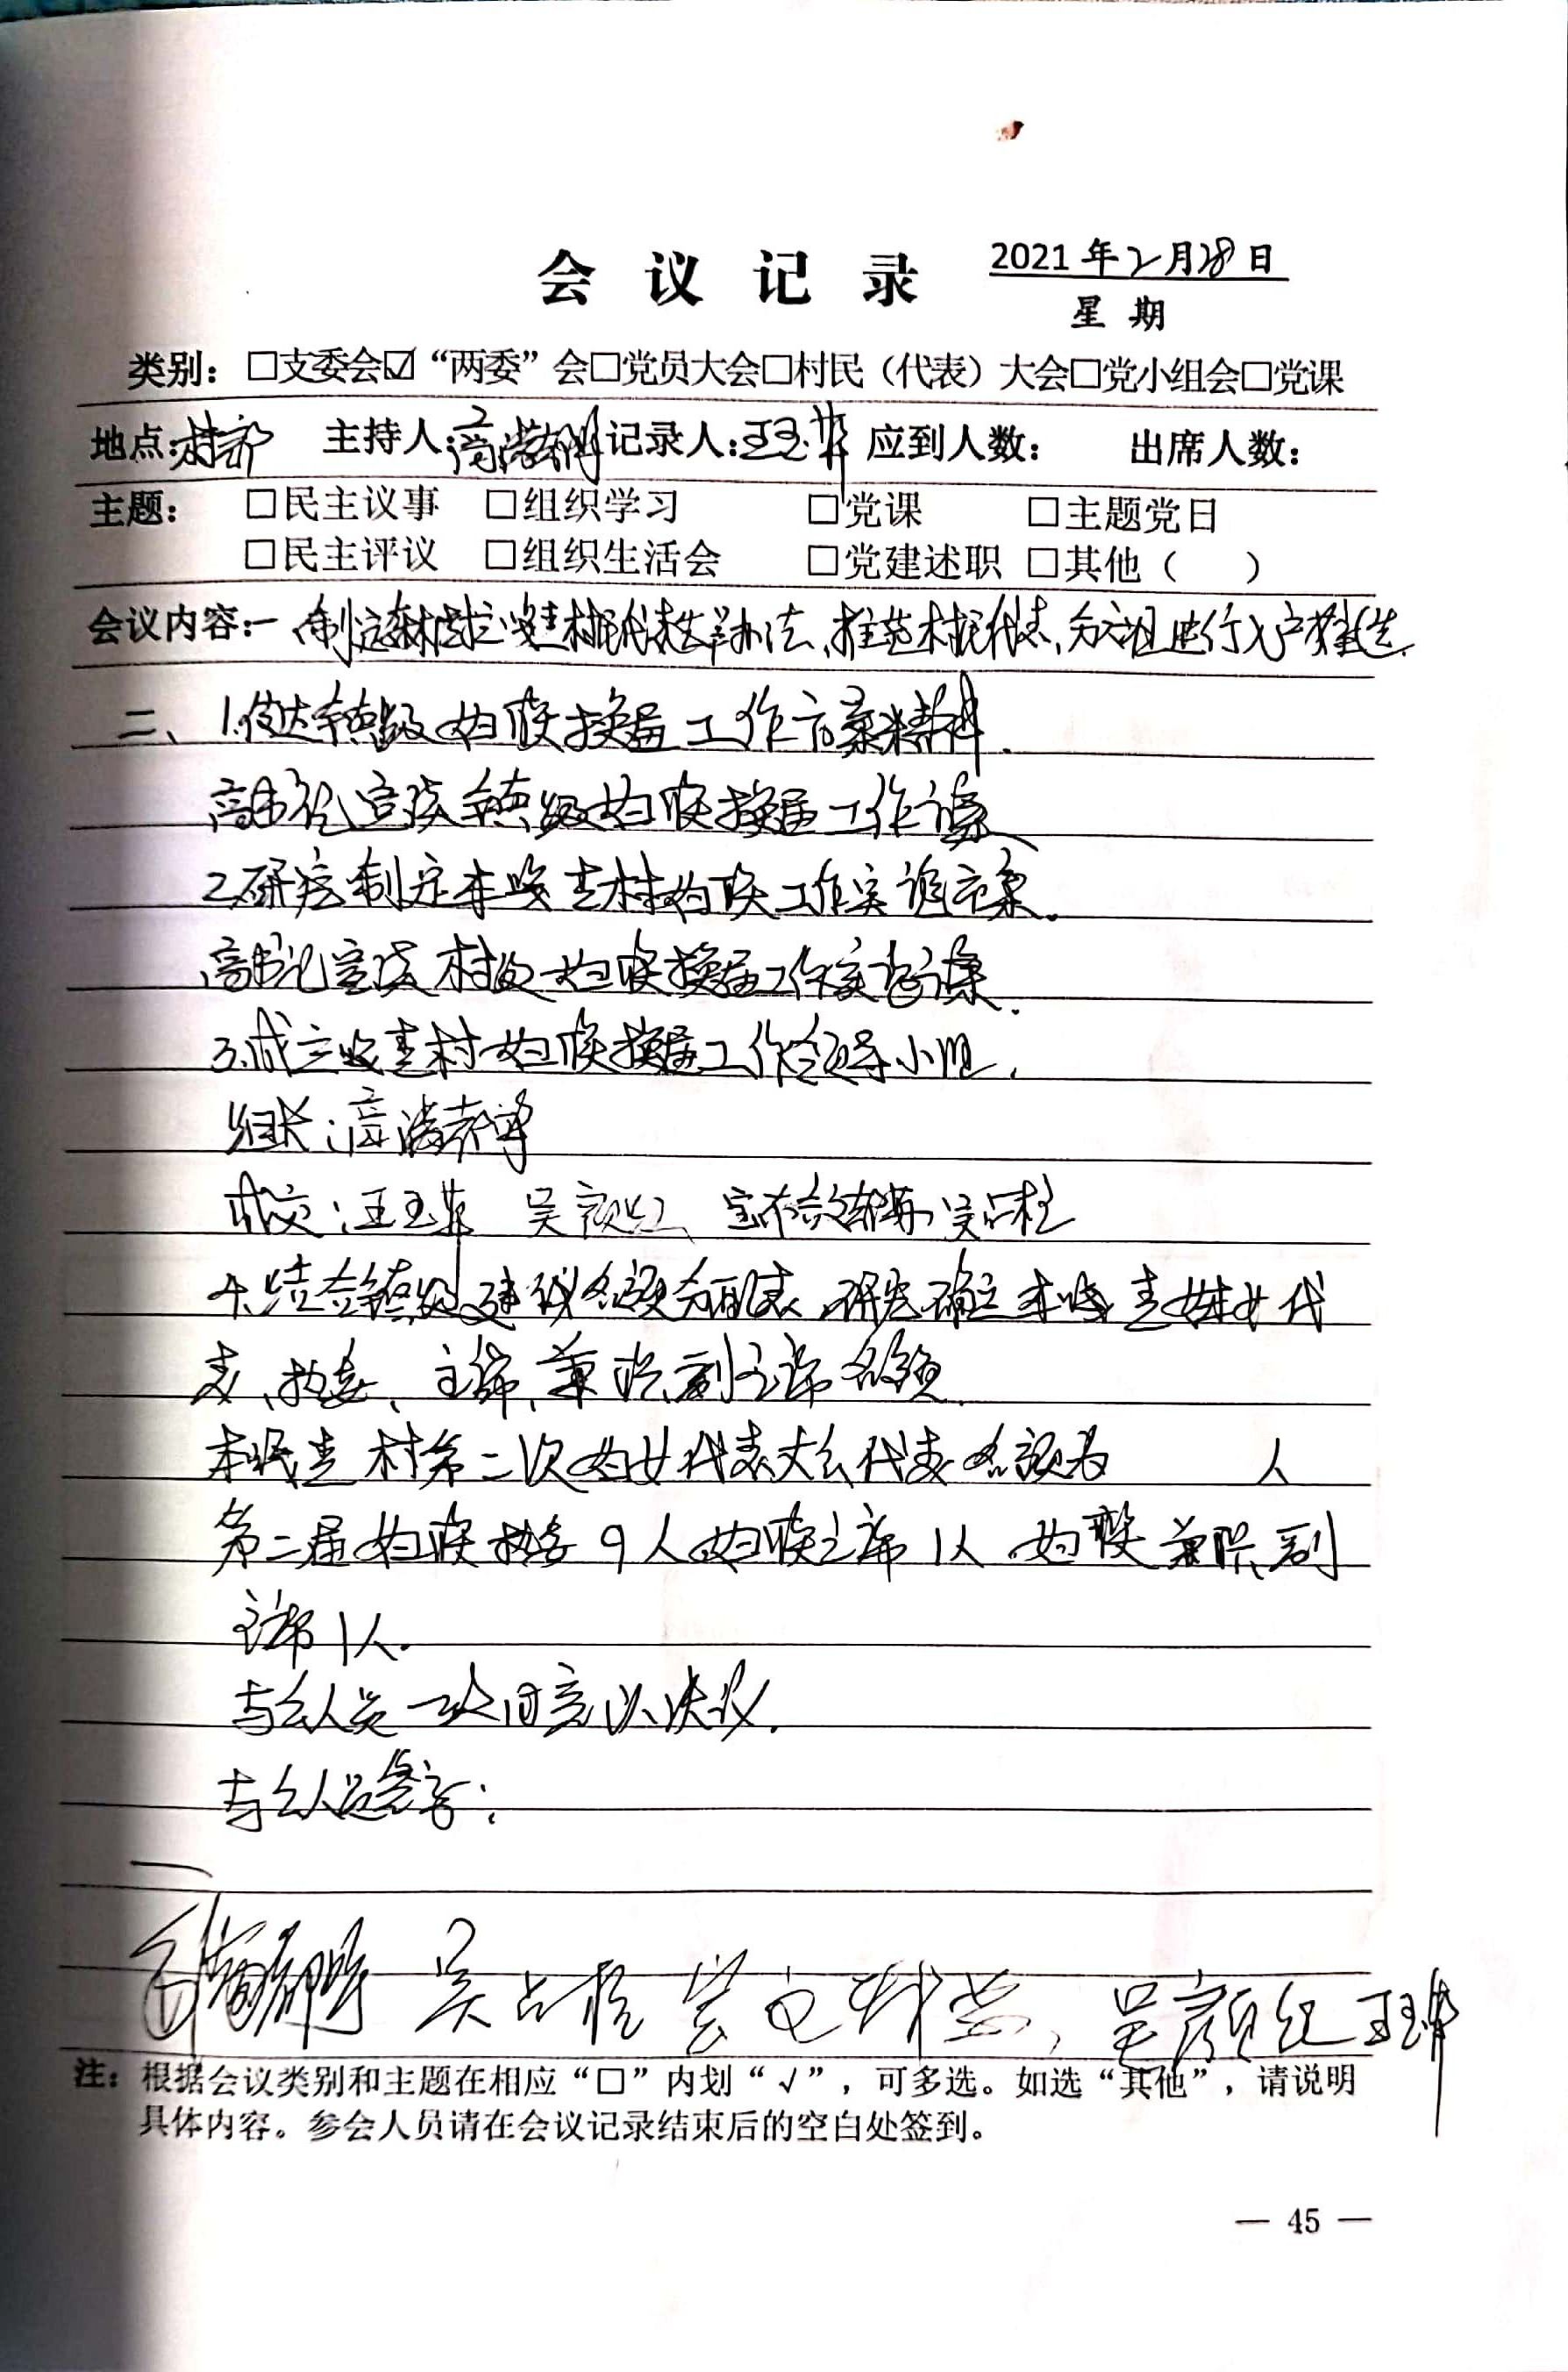 会议记录 2021年2月28日
星期
类别：□支委会☑“两委”会□党员大会□村民（代表）大会□党小组会□党课
地点：村部 主持人：高 记录人：王玉 应到人数： 出席人数：
主题： □民主议事 □组织学习 □党课 □主题党日
□民主评议 □组织生活会 □党建述职 □其他（ ）
会议内容：一、制定 村民代表选举办法、推选村民代表，分组进行入户推选.
二、1.传达镇级妇联换届工作方案精神.
高书记宣读镇级妇联换届工作方案
2.研究制定 村妇联工作实施方案.
高书记宣读村级妇联换届工作实施方案.
3.成立 村妇联换届工作领导小组.
组长：高
成员：王玉 吴颜红 吴占柱
4.结合镇级建议名额分配表，研究确定 妇女代
表、执委、主席、兼职副主席名额.
村第二次妇女代表大会代表名额为 人
第二届妇联执委9人，妇联主席1人，妇联兼职副
主席1人.
与会人员一致同意以决议.
与会人员签字：
吴占柱 吴颜红 王玉
注：根据会议类别和主题在相应“□”内划“√”，可多选。如选“其他”，请说明
具体内容。参会人员请在会议记录结束后的空白处签到。
— 45 —